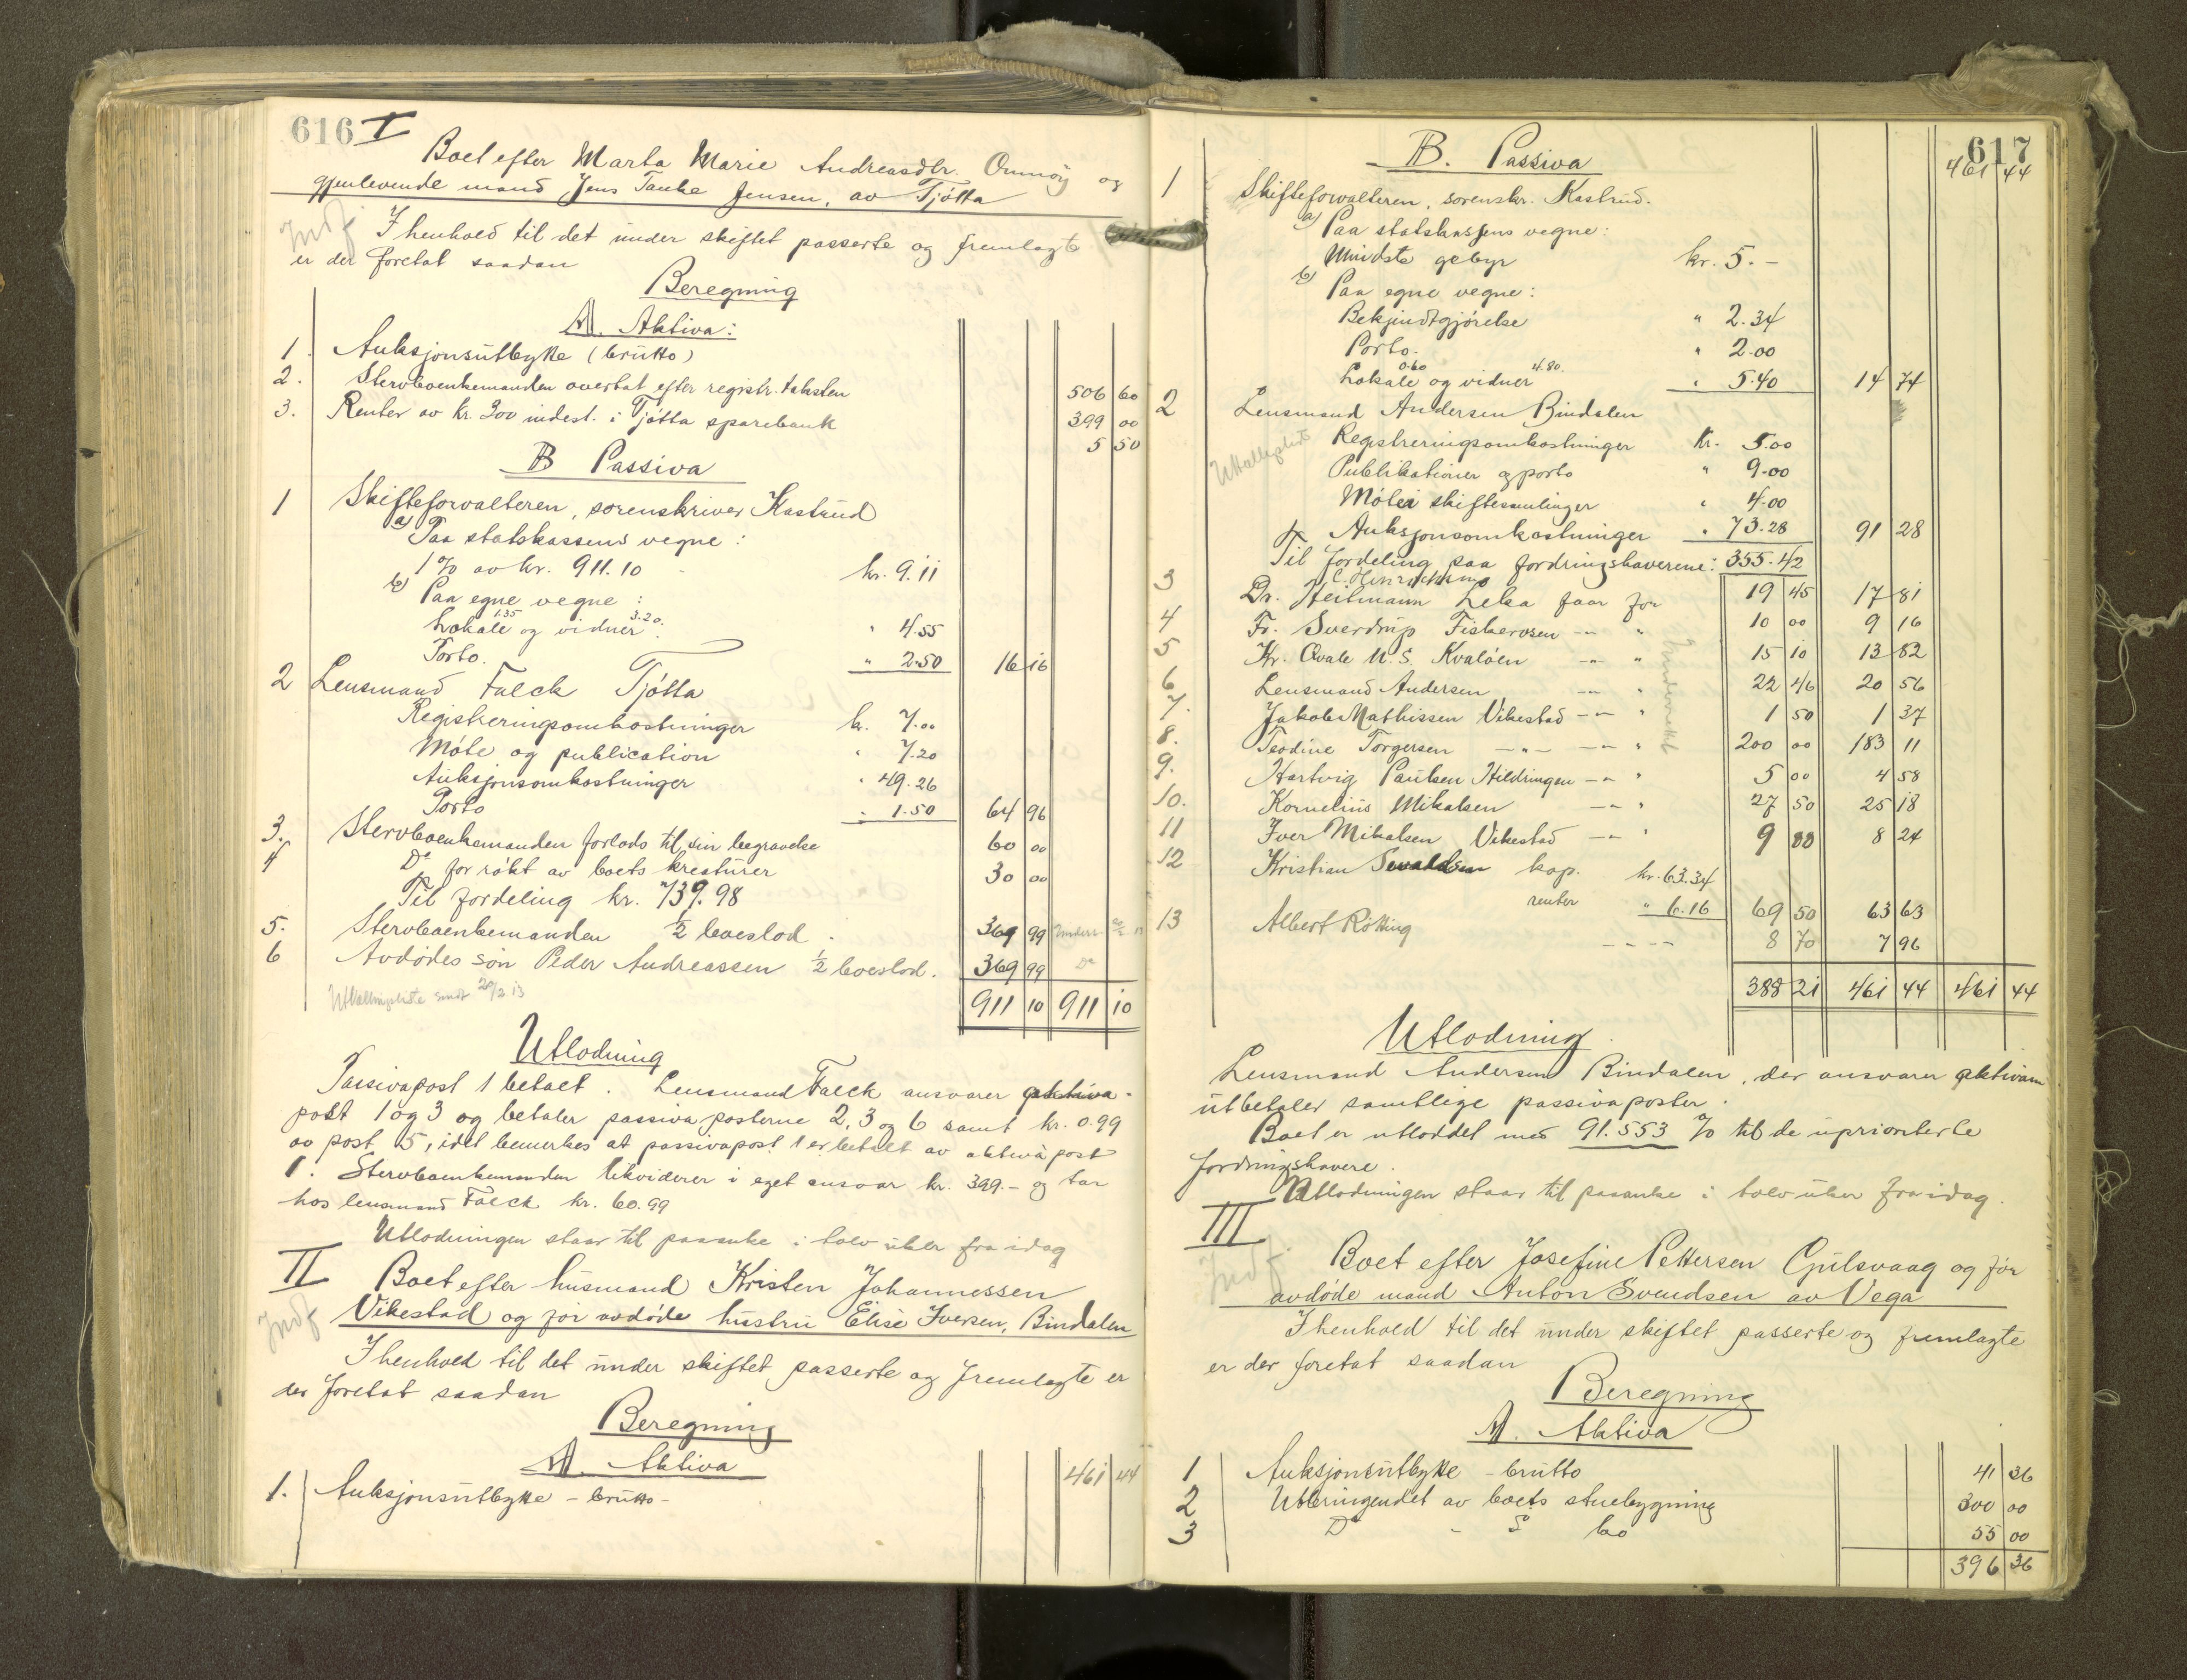 616 I
Boet efter Marta Marie Andreasdtr. Omnøy og
gjenlevende mand Jens Tanke Jensen, av Tjøtta
Indf
I henhold til det under skiftet passerte og fremlagte
er der foretat saadan
Beregning
A. Aktiva:
1. Auksjonsutbytte (brutto) 506 60
2. Stervboenkemanden overtat efter registr. taksten 399 00
3. Renter av kr. 300 indest. i Tjøtta sparebank 5 50
B Passiva
1 Skifteforvalteren, sorenskriver Kastrud
a) Paa statskassens vegne:
1% av kr. 911.10 kr. 9.11
b) Paa egne vegne:
1.35 3.20.
Lokale og vidner. " 4.55
Porto. " 2.50 16 16
2 Lensmand Falck Tjøtta
Registreringsomkostninger kr. 7.00
Møte og publication " 7.20
Auksjonsomkostninger " 49.26
Porto " 1.50 64 96
3. Stervboenkemanden forlods til sin begravelse 60 00
4 Do for røkt av boets kreaturer 30 00
Til fordeling kr. 739.98
5. Stervboenkemanden ½ boeslod. 369 99
6 Avdødes søn Peder Andreassen ½ boeslod. 369 99 Do
Utlodningsliste sendt 20/2 13
911 10 911 10
Utlodning
Passivapost 1 betalt. Lensmand Falck ansvarer aktiva-
post 1 og 3 og betaler passiva posterne 2, 3 og 6 samt kr. 0.99
av post 5, idet bemerkes at passivapost 1 er betalt av aktiva post
1. Stervboenkemanden likviderer i eget ansvar kr. 399.- og tar
hos lensmand Falck kr. 60.99
Utlodningen staar til paaanke i tolv uker fra idag
II Boet efter husmand Kristen Johannessen
Vikestad og før avdøde hustru Elise Iversen, Bindalen
Indf
I henhold til det under skiftet passerte og fremlagte er
der foretat saadan
Beregning
A. Aktiva
1. Auksjonsutbytte - brutto - 461 44
617
B. Passiva
461 44
1 Skifteforvalteren, sorenskr. Kastrud.
a) Paa statskassens vegne:
Mindste gebyr kr. 5.-
b) Paa egne vegne:
Bekjendtgjørelse " 2.34
Porto. " 2.00
0.60 4.80.
Lokale og vidner " 5.40 14 74
2 Lensmand Andersen Bindalen
Registreringsomkostninger kr. 5.00
Publikationer og porto " 9.00
Møte i skiftesamlinger " 4.00
Auksjonsomkostninger " 73.28 91 28
Til fordeling paa fordringshaverne: 355.42
3 Dr. Heitmann Leka faar for 19 45 17 81
4 Fr. Sverdrup Fiskerosen -"- " 10 00 9 16
5 Kr. Qvale U.S. Kvaløen -"- " 15 10 13 82
6 Lensmand Andersen -"- " 22 46 20 56
7. Jakob Mathissen Vikestad -"- " 1 50 1 37
8. Teodine Torgersen -"- -"- " 200 00 183 11
9. Hartvig Paulsen Hildringen -"- " 5 00 4 58
10. Kornelius Mikalsen -"- " 27 50 25 18
11 Iver Mikalsen Vikestad -"- " 9 00 8 24
12 Kristian Sevaldsen kap. kr. 63.34
renter " 6.16 69 50 63 63
13 Albert Røtting - - - - 8 70 7 96
388 21 461 44 461 44
Utlodning.
Lensmand Andersen Bindalen, der ansvarer aktivam
utbetaler samtlige passivaposter.
Boet er utloddet med 91.553 % til de uprioriterte
fordringshavere.
Utlodningen staar til paaanke i tolv uker fra idag.
III
Indf
Boet efter Josefine Pettersen Gulsvaag og før
avdøde mand Anton Svendsen av Vega
I henhold til det under skiftet passerte og fremlagte
er der foretat saadan
Beregning
A. Aktiva
1 Auksjonsutbytte - brutto 41 36
2 Utbringendet av boets stuebygning 300 00
3 Do - " bo 55 00
396 36